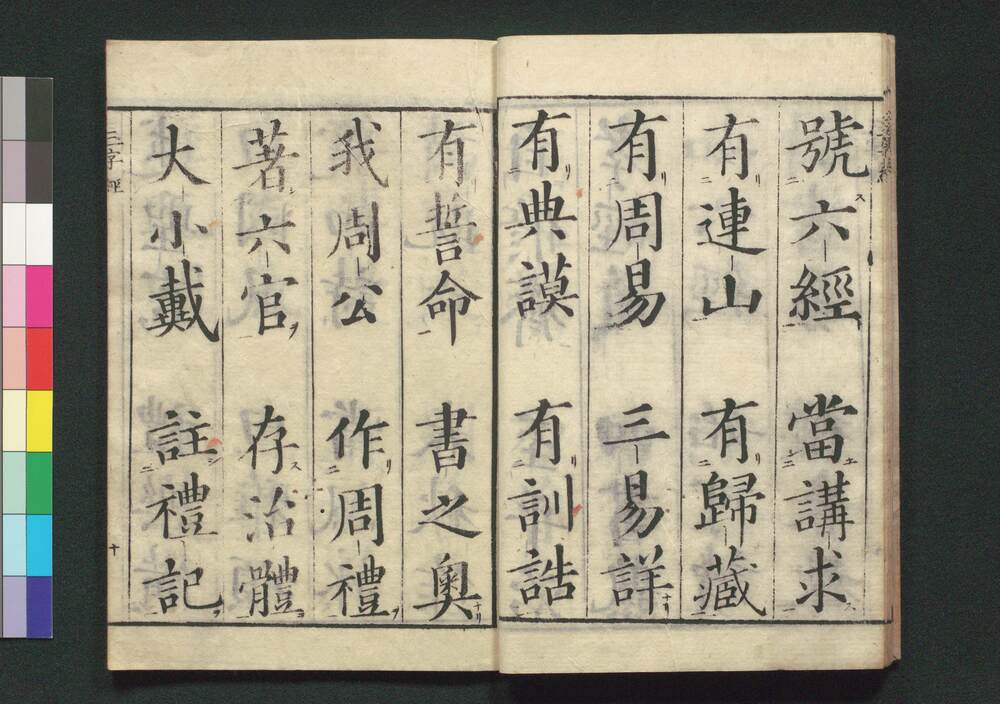 號六經 當講求
有連山 有歸藏
有周易 三易詳
有典謨 有訓誥
有誓命 書之奧
我周公 作周禮
著六官 存治體
大小戴 註禮記
三字經
十